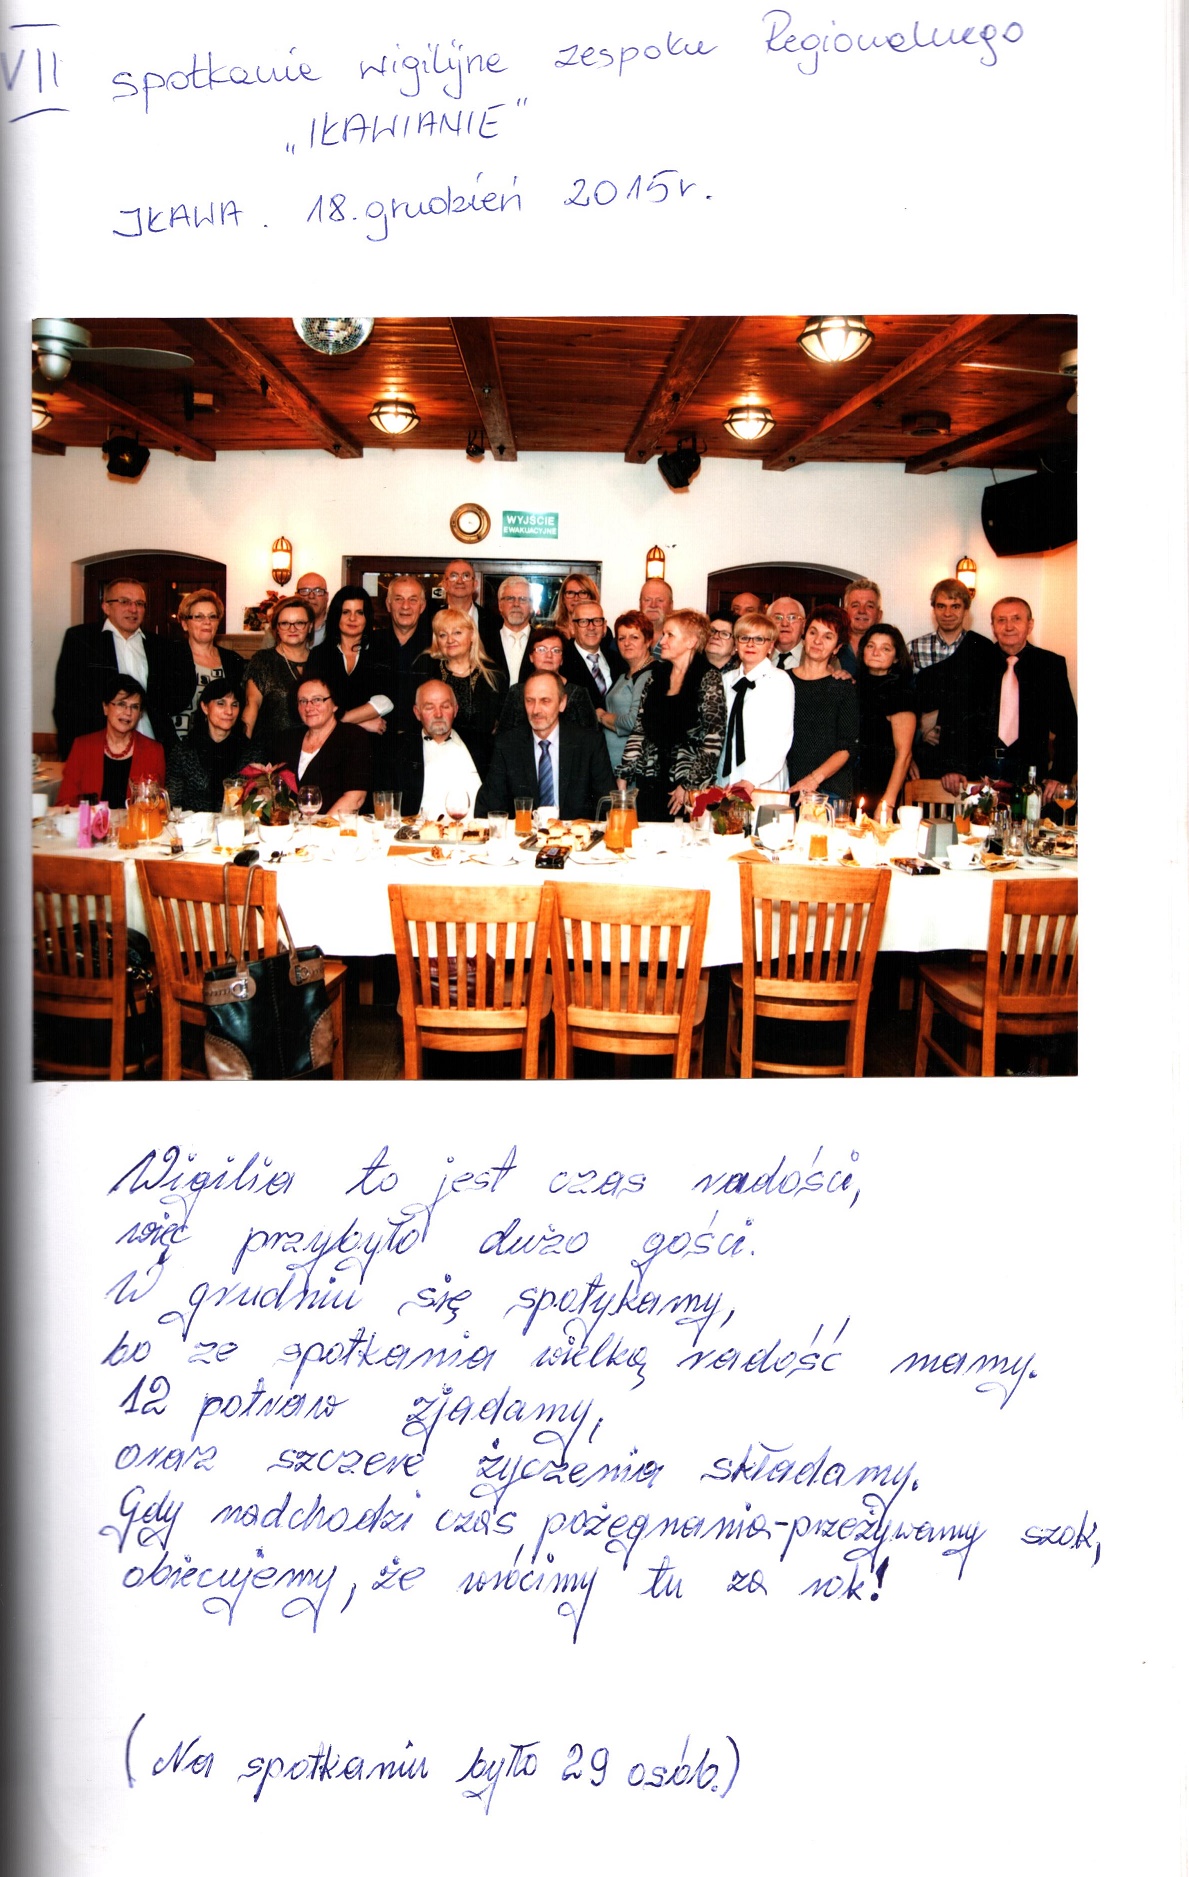 VII spotkanie wigilijne zespołu Regionalnego
„IŁAWIANIE”
IŁAWA. 18. grudzień 2015r.
WYJŚCIE
EWAKUACYJNE
Wigilia to jest czas radości,
więc przybyło dużo gości.
W grudniu się spotykamy,
bo ze spotkania wielką radość mamy.
12 potraw zjadamy,
oraz szczere życzenia składamy.
Gdy nadchodzi czas pożegnania-przeżywamy szok,
obiecujemy, że wrócimy tu za rok!
(Na spotkaniu było 29 osób.)